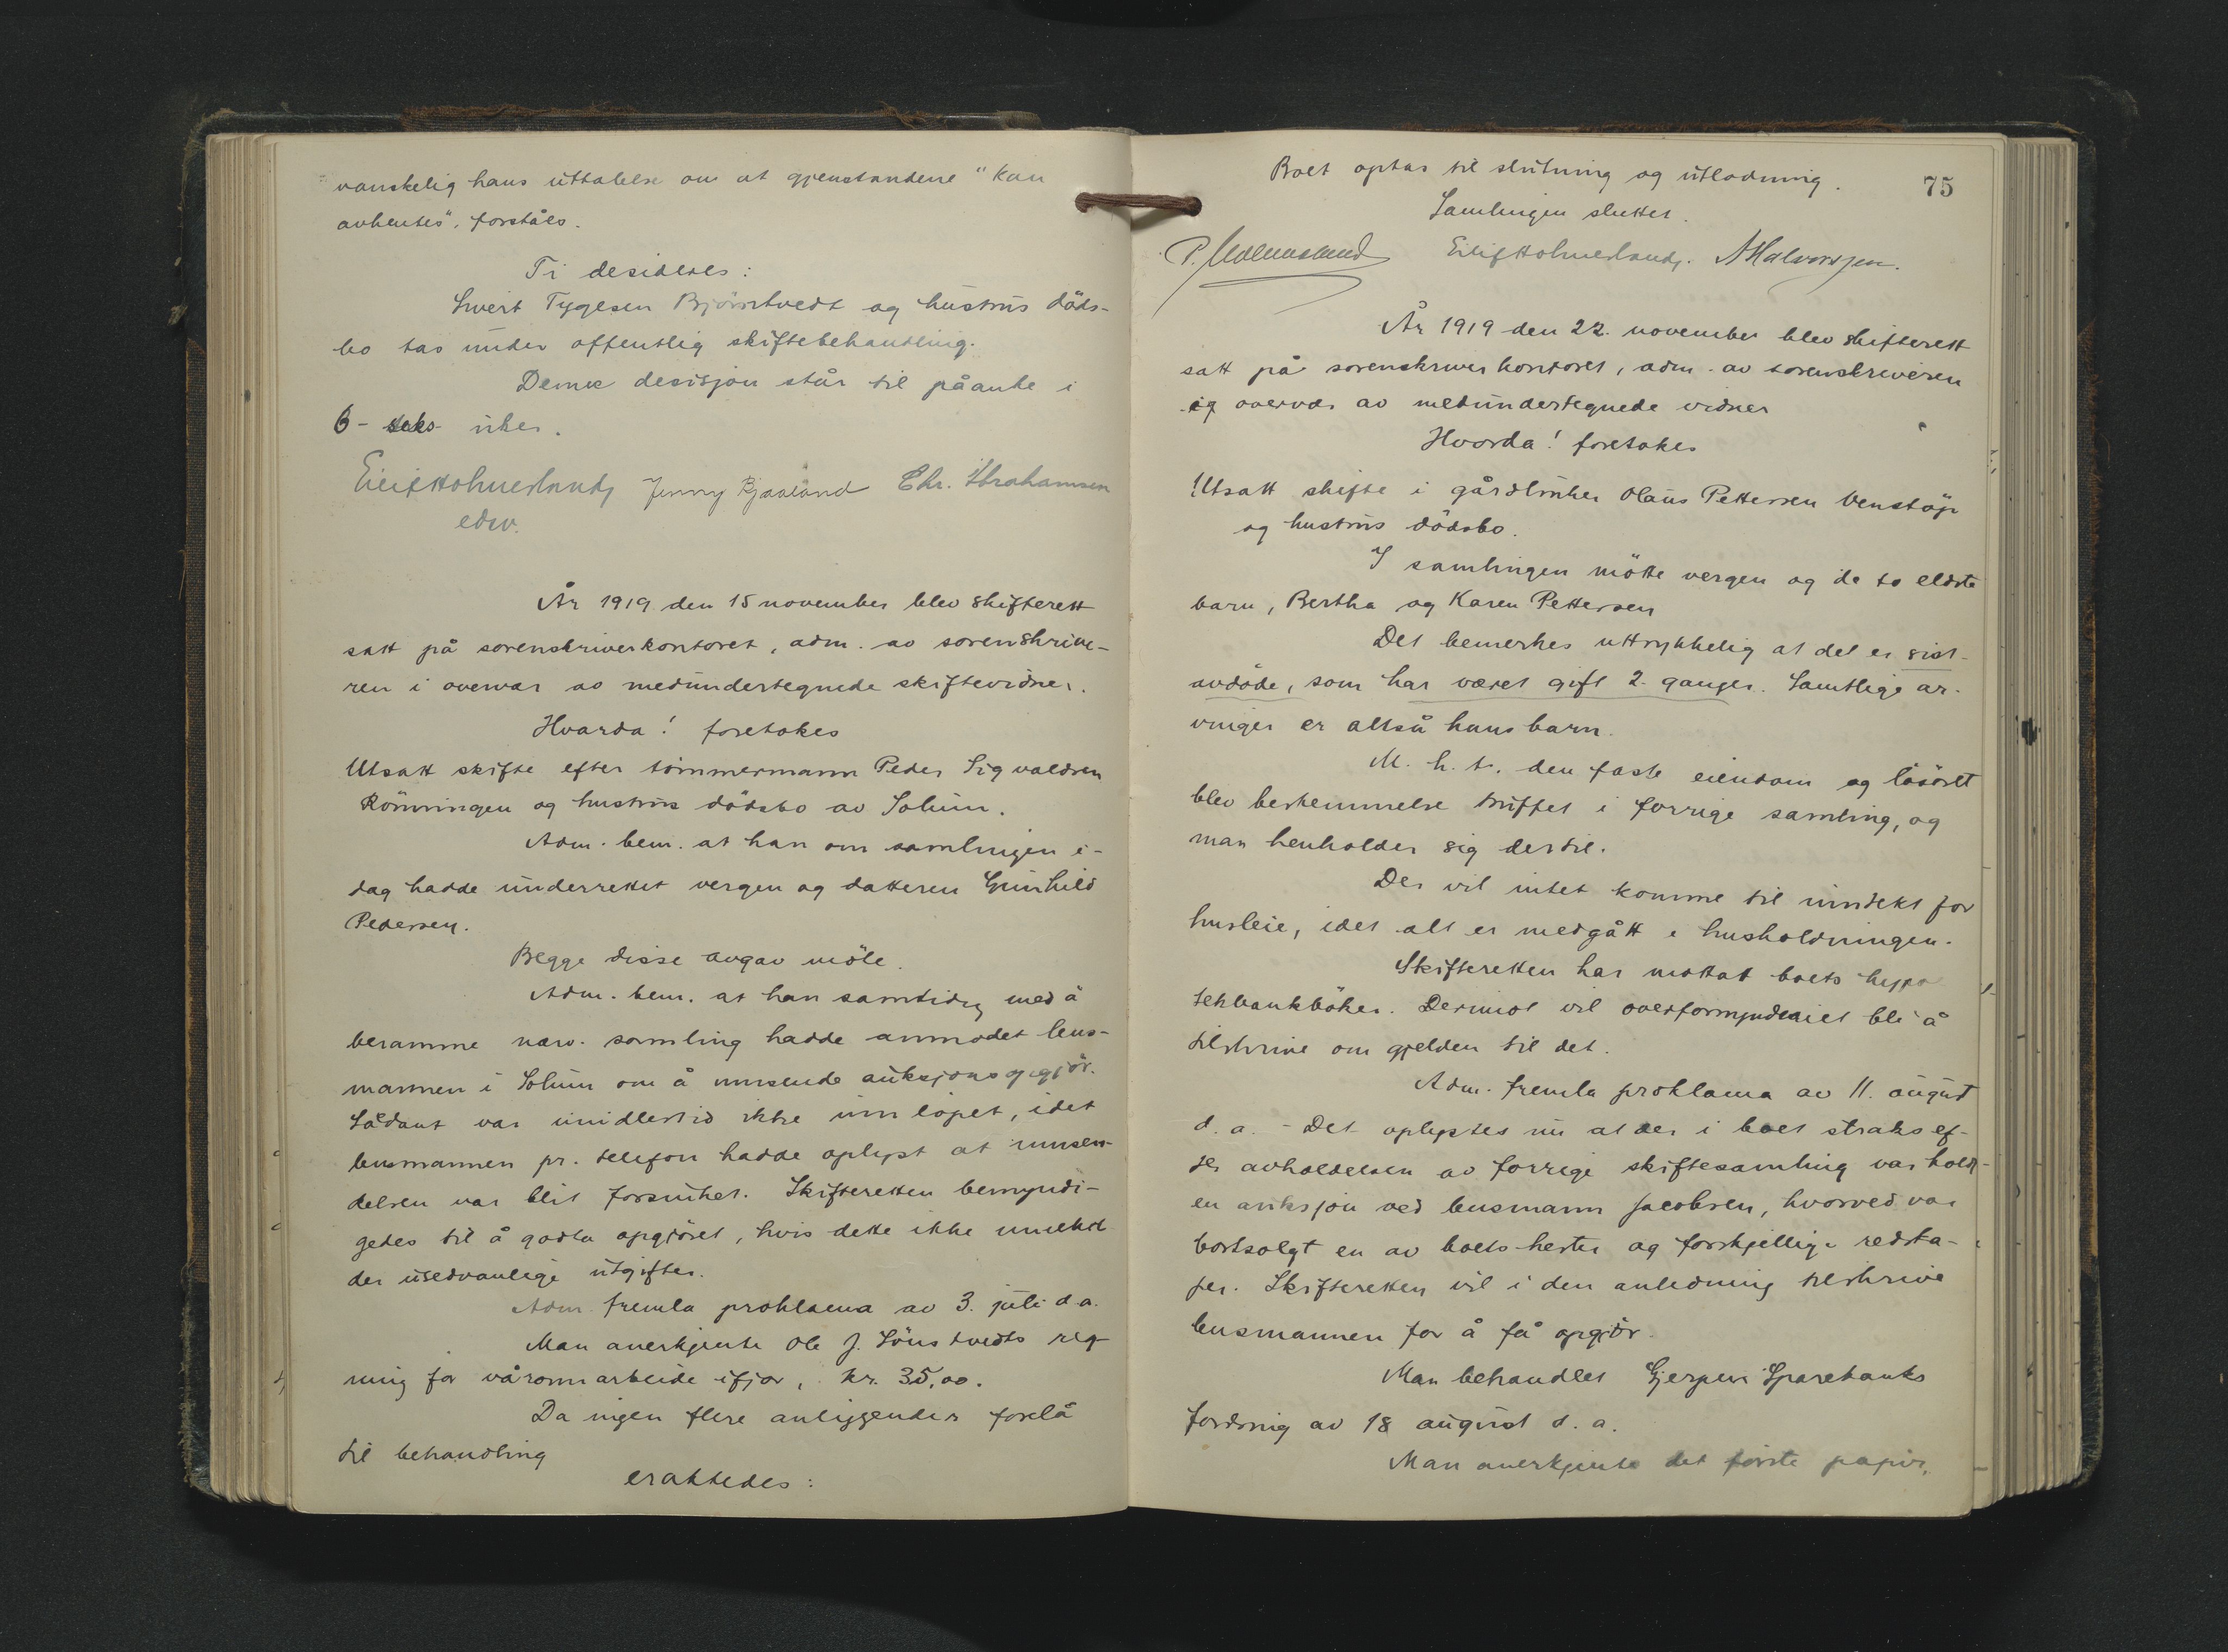 vanskelig hans uttalelse om at gjenstandene "kan
avhentes", forståes.
Ti desideres:
Sivert Tygesen Bjørntvedt og hustrus döds-
bo tas under offentlig skiftebehandling.
Denne desisjon står til påanke i
6 - seks - uker.
Eilif Holmesland, Jenny Bjaaland Chr. Abrahamsen
edsv.
År 1919 den 15 november blev skifterett
satt på sorenskriverkontoret, adm. av sorenskrive-
ren i overvær av medundertegnede skiftevidner.
Hvorda! foretokes
Utsatt skifte efter tömmermann Peder Sigvaldsen
Rönningen og hustrus dödsbo av Solum.
Adm. bem. at han om samlingen i-
dag hadde underrettet vergen og datteren Gunhild
Pedersen.
Begge disse avgav möte.
Adm. bem. at han samtidig med å
beramme nærv. samling hadde anmodet lens-
mannen i Solum om å innsende auksjonsopgjör.
Sådant var imidlertid ikke innlöpet, idet
lensmannen pr. telefon hadde oplyst at innsen-
delsen var blit forsinket. Skifteretten bemyndi-
gedes til å godta opgjöret, hvis dette ikke innehol-
der usedvanlige utgifter.
Adm. fremla proklama av 3. juli d.a.
Man anerkjente Ole J. Löns tvedts reg-
ning for våronnarbeide ifjor, kr. 35,00.
Da ingen flere anliggender forelå
til behandling
eraktedes:
75
Boet optas til slutning og utlodning.
Samlingen sluttet.
P. Eilif Holmesland, A Halvorsen.
År 1919 den 22. november blev skifterett
satt på sorenskriverkontoret, adm. av sorenskriveren
og overvær av medundertegnede vidner
Hvorda! foretokes
Utsatt skifte i gårdbruker Olaus Pettersen Venstöp
og hustrus dödsbo.
I samlingen mötte vergen og de to eldste
barn, Bertha og Karen Pettersen
Det bemerkes uttrykkelig at det er sist-
avdöde, som har været gift 2 ganger. Samtlige ar-
vinger er altså hans barn.
M. h. t. den faste eiendom og lösöret
blev bestemmelse truffet i forrige samling, og
man henholder sig dertil.
Der vil intet komme til inntekt for
husleie, idet alt er medgått i husholdningen.
Skifteretten har mottat boets hypo
tekbankböker. Derimot vil overformynderiet bli å
tilskrive om gjelden til det.
Adm. fremla proklama av 11. august
d. a. - Det oplystes nu at der i boet straks ef-
ter avholdelsen av forrige skiftesamling var holdt
en auksjon ved lensmann Jacobsen, hvorved var
bortsolgt en av boets hester og forskjellige redska-
per. Skifteretten vil i den anledning tilskrive
lensmannen for å få opgjör.
Man behandlet Gjerpen Sparebanks
fordring av 18 august d. a.
Man anerkjente det förste papir,